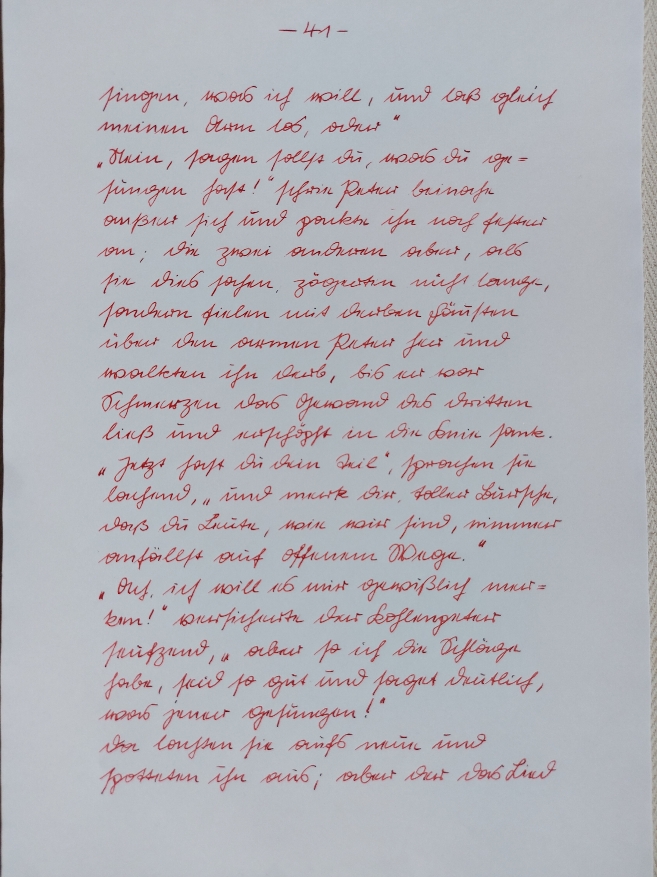 — 41 —
singen, was ich will, und laß gleich
meinen Arm los, oder"
„Nein, sagen sollst du, was du ge=
sungen hast!" schrie Peter beinahe
außer sich und packte ihn noch fester
an; die zwei anderen aber, als
sie dies sahen, zögerten nicht lange,
sondern fielen mit derben Fäusten
über den armen Peter her und
walkten ihn derb, bis er vor
Schmerzen das Gewand des dritten
ließ und erschöpft in die Knie sank.
„Jetzt hast du dein Teil", sprachen sie
lachend, „und merk dir, toller Bursche,
daß du Leute, wie wir sind, nimmer
anfällst auf offenem Wege."
„Ach, ich will es mir gewißlich mer=
ken!" versicherte der Kohlenpeter
seufzend, „aber so ich die Schläge
habe, seid so gut und saget deutlich,
was jener gesungen!"
Da lachten sie aufs neue und
spotteten ihn aus; aber der das Lied